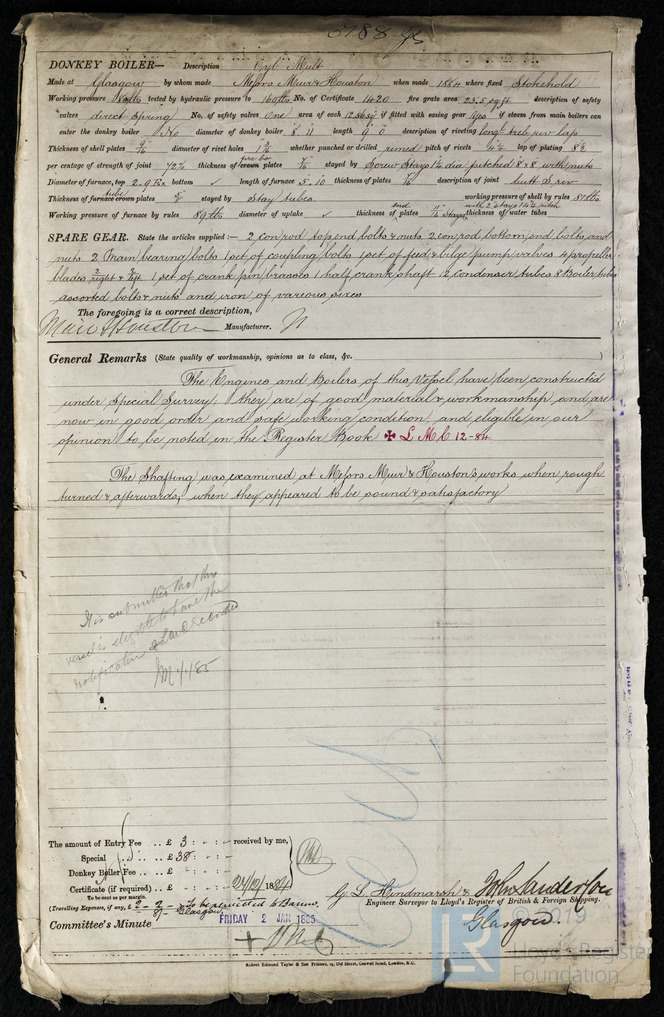 5788 Gls
DONKEY BOILER— Description Cyl Mult
Made at Glasgow by whom made Messrs Muir & Houston when made 1884 where fixed Stokehold
Working pressure 80 lbs tested by hydraulic pressure to 160 lbs No. of Certificate 1420 fire grate area 23.5 sq ft description of safety
valves direct Spring No. of safety valves One area of each 12.56 sq i if fitted with easing gear Yes if steam from main boilers can
enter the donkey boiler No diameter of donkey boiler 8' 11" length 9' 0" description of riveting long treb. riv lap
Thickness of shell plates diameter of rivet holes whether punched or drilled rimed pitch of rivets 4 1/4 lap of plating
per centage of strength of joint 72% thickness of crown plates fire box stayed by Screw Stays 1 1/4 dia pitched 8 x 8 with nuts
Diameter of furnace, top 2. 9 1/2 x bottom ✓ length of furnace 5. 10 thickness of plates description of joint butt S. riv
Thickness of furnace crown plates tube stayed by Stay tubes working pressure of shell by rules 81 lbs
Working pressure of furnace by rules 89 lbs diameter of uptake ✓ thickness of end plates stays with 2 stays 14 1/2 pitch thickness of water tubes
SPARE GEAR. State the articles supplied:— 2 con rod top end bolts & nuts 2 con rod bottom end bolts and
nuts 2 Main bearing bolts 1 set of coupling bolts 1 set of feed & bilge pump valves 4 propeller
blades 2 right & 2 left 1 set of crank pin brasses 1 half crank shaft 12 condenser tubes 8 Boiler tubes
assorted bolts & nuts and iron of various sizes
The foregoing is a correct description,
Muir & Houston Manufacturer.
General Remarks (State quality of workmanship, opinions as to class, &c.
The Engines and Boilers of this Vessel have been constructed
under Special Survey, they are of good material & workmanship and are
now in good order and safe working condition and eligible in our
opinion to be noted in the Register Book ✠ L M C 12-84
The Shafting was examined at Messrs Muir & Houston's works when rough
turned & afterwards, when they appeared to be sound & satisfactory
It is submitted that this
vessel is eligible to have the
notification ✠ LMC recorded
JM 1/1/85
The amount of Entry Fee .. £ 3 : - : - received by me,
Special .. .. £ 38 : - : -
Donkey Boiler Fee .. £ : :
Certificate (if required) .. £ : : 24/12/1884
To be sent as per margin.
(Travelling Expenses, if any, £ 2 - 2 - To be remitted to
Glasgow
G. L. Hindmarsh & John Sanderson
Engineer Surveyor to Lloyd's Register of British & Foreign Shipping.
Committee's Minute FRIDAY 2 JAN 1885
Glasgow
+ LMC
Robert Edmund Taylor & Son Printers, 19, Old Street, Goswell Road, London, E.C.
© 2019
LR
Lloyd's Register
Foundation